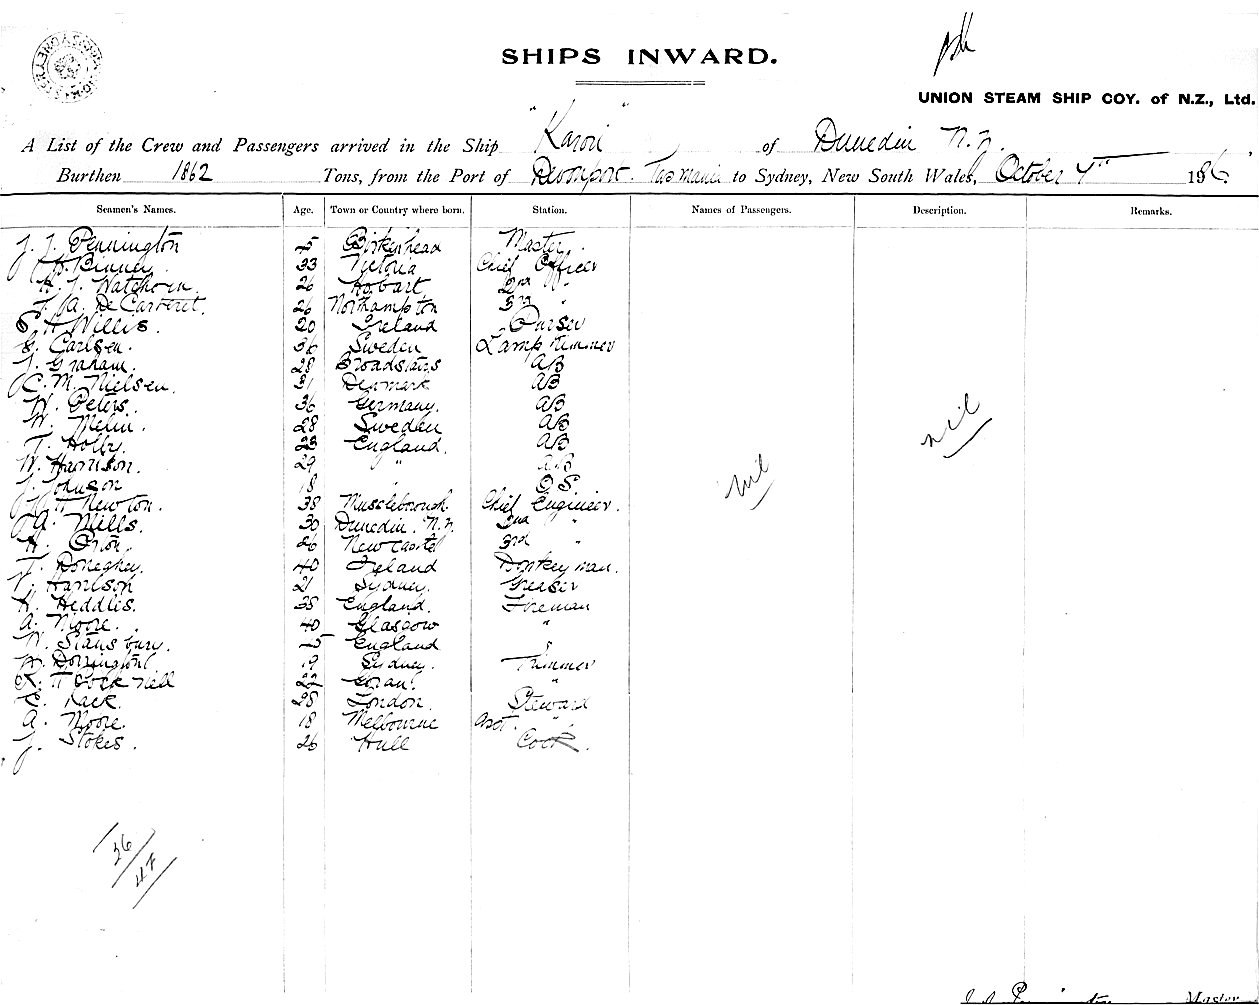 SHIPS INWARD.
UNION STEAM SHIP COY. of N.Z., Ltd.
A List of the Crew and Passengers arrived in the Ship "Karori" of Dunedin N.Z.
Burthen 1862 Tons, from the Port of Devonport Tasmania to Sydney, New South Wales, October 4th 19
Seamen's Names. Age. Town or Country where born. Station. Names of Passengers. Description. Remarks.
J. J. Pennington Birkenhead Master
Binney 33 Victoria Chief Officer
H. J. Watchorn 26 Hobart 2nd "
J. A. De Carteret. 26 Northampton 3rd "
S. H. Willis. 20 Ireland Purser
G. Carlsen. 36 Sweden Lamp trimmer
J. Graham. 28 Broadstairs AB
C. M. Nielsen. 31 Denmark AB
W. Peters. 36 Germany. AB
W. Melin. 28 Sweden AB
T. Holly. 23 England. AB
W. Harrison. 29 " AB
J. Johnson 18 OS
Newton. 38 Mussleborough. Chief Engineer.
J. A. Mills. 30 Dunedin. N.Z. 2nd "
H. Orton. 26 Newcastle 3rd "
J. Doneghey. 40 Ireland Donkeyman.
Harrison 21 Sydney. Greaser
H. Heddlis. 38 England. Fireman
A. Moore. 40 Glasgow "
W. Stansbury. England "
Dorrington 19 Sydney. Trimmer
Cocknell 22 "
Rack. 28 London. Steward
A. Moore. 18 Melbourne Asst. "
J. Stokes. 26 Hull Cook.
nil
nil
26/47
Master